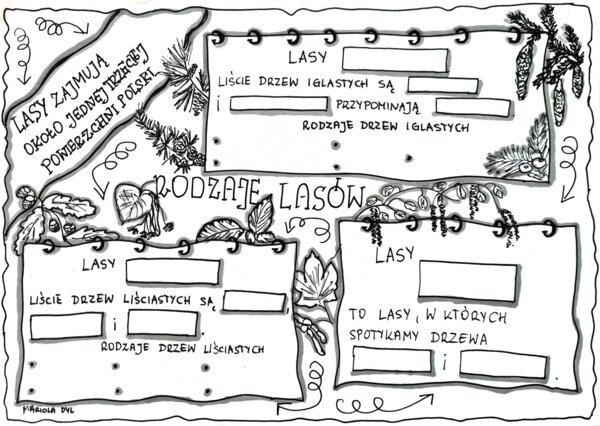 LASY ZAJMUJĄ
OKOŁO JEDNEJ TRZECIEJ
POWIERZCHNI POLSKI
LASY
LIŚCIE DRZEW IGLASTYCH SĄ
I PRZYPOMINAJĄ
RODZAJE DRZEW IGLASTYCH
RODZAJE LASÓW
LASY
LIŚCIE DRZEW LIŚCIASTYCH SĄ ,
i .
RODZAJE DRZEW LIŚCIASTYCH
LASY
TO LASY, W KTÓRYCH
SPOTYKAMY DRZEWA
i .
MARIOLA DYL